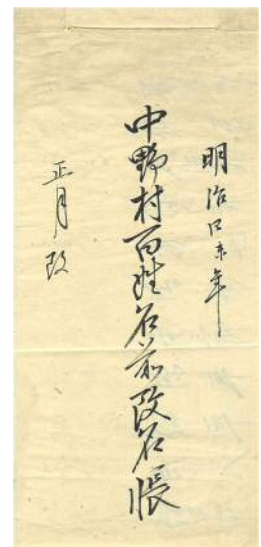 明治口未年
中野村百姓名前改名帳
正月改